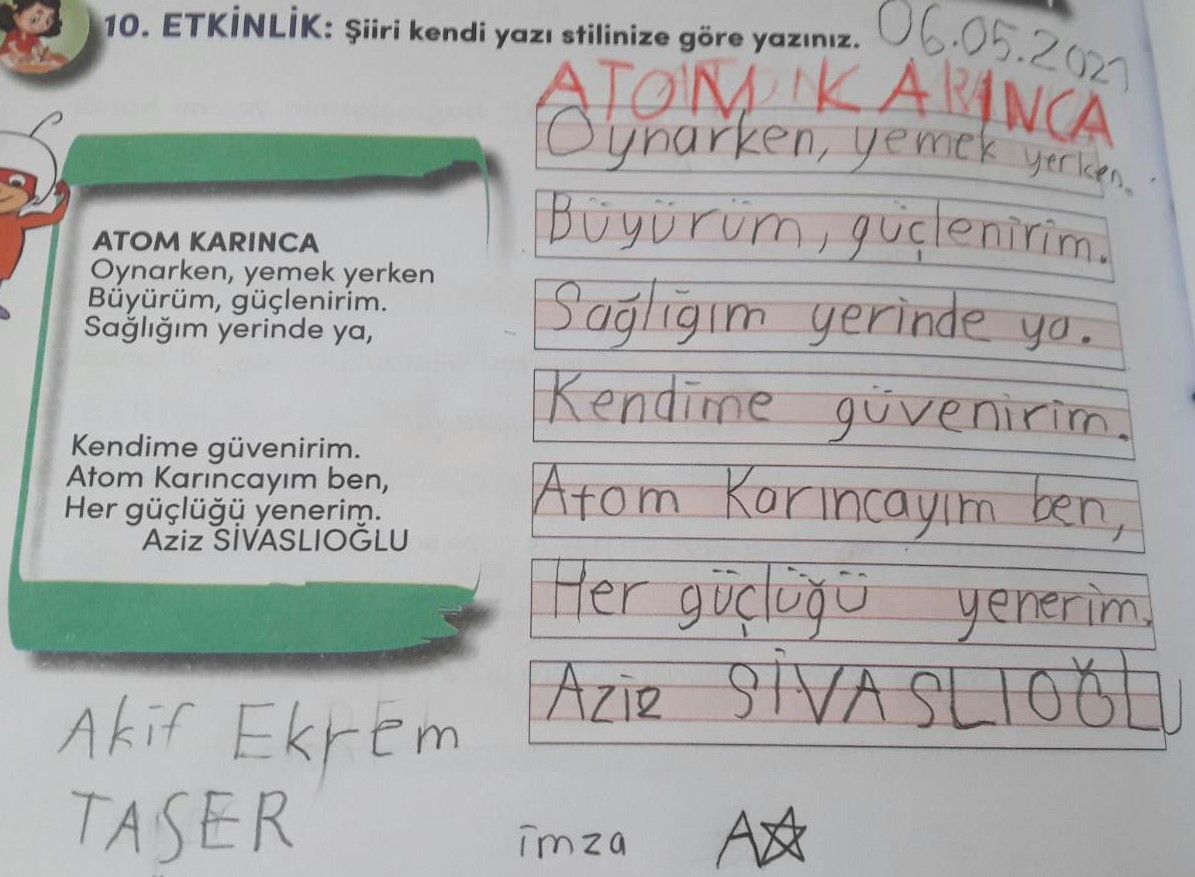 10. ETKİNLİK: Şiiri kendi yazı stilinize göre yazınız.
06.05.2021
ATOM KARINCA
Oynarken, yemek yerken
Büyürüm, güçlenirim.
Sağlığım yerinde ya,
Kendime güvenirim.
Atom Karıncayım ben,
Her güçlüğü yenerim.
Aziz SİVASLIOĞLU
ATOM KARINCA
Oynarken, yemek yerken.
Büyürüm, güçlenirim.
Sağlığım yerinde ya.
Kendime güvenirim.
Atom Karıncayım ben,
Her güçlüğü yenerim.
Aziz SİVASLIOĞLU
Akif Ekrem
TAŞER
imza A